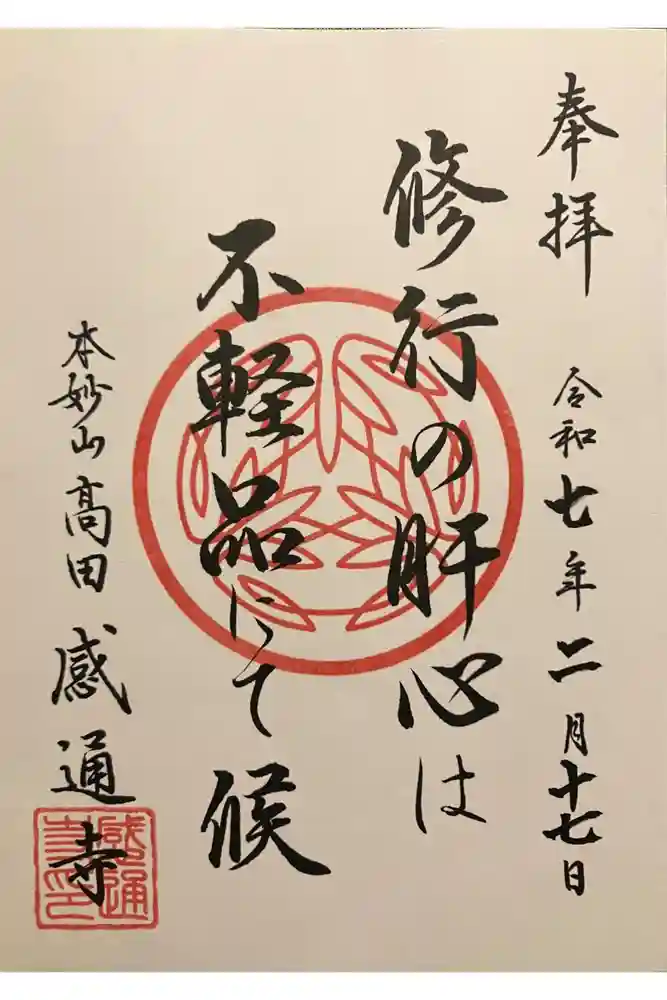 奉拝 令和七年二月十七日
修行の肝心は
不軽品にて候
本妙山高田感通寺
感通寺印